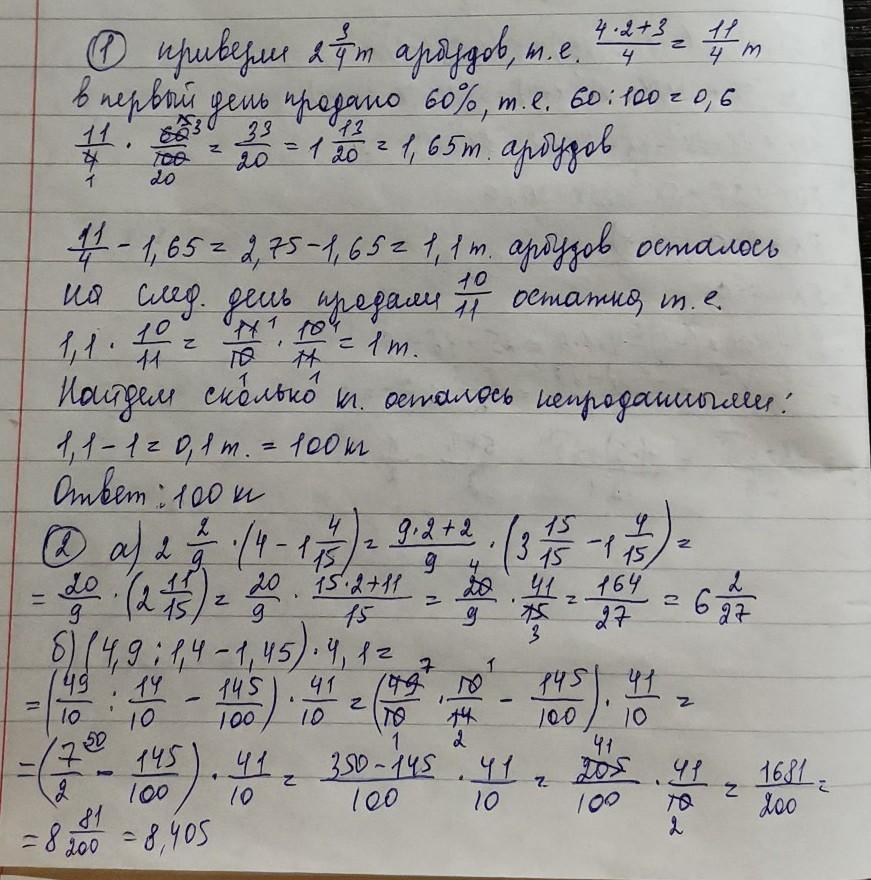 ① привезли 2 3/4 т арбузов, т.е. (4·2+3)/4 = 11/4 т
в первый день продано 60%, т.е. 60:100=0,6
11/4 · 60/100 = 33/20 = 1 13/20 = 1,65т. арбузов
11/4 - 1,65 = 2,75-1,65 = 1,1т. арбузов осталось
На след. день продали 10/11 остатка, т.е.
1,1 · 10/11 = 11/10 · 10/11 = 1т.
Найдем сколько кг. осталось непроданными:
1,1-1=0,1т. = 100кг
Ответ: 100 кг
② а) 2 2/9 · (4 - 1 4/15) = (9·2+2)/9 · (3 15/15 - 1 4/15) =
= 20/9 · (2 11/15) = 20/9 · (15·2+11)/15 = 20/9 · 41/15 = 164/27 = 6 2/27
б) (4,9:1,4-1,45)·4,1=
= (49/10 : 14/10 - 145/100) · 41/10 = (49/10 · 10/14 - 145/100) · 41/10 =
= (7/2 - 145/100) · 41/10 = (350-145)/100 · 41/10 = 205/100 · 41/10 = 1681/200 =
= 8 81/200 = 8,405